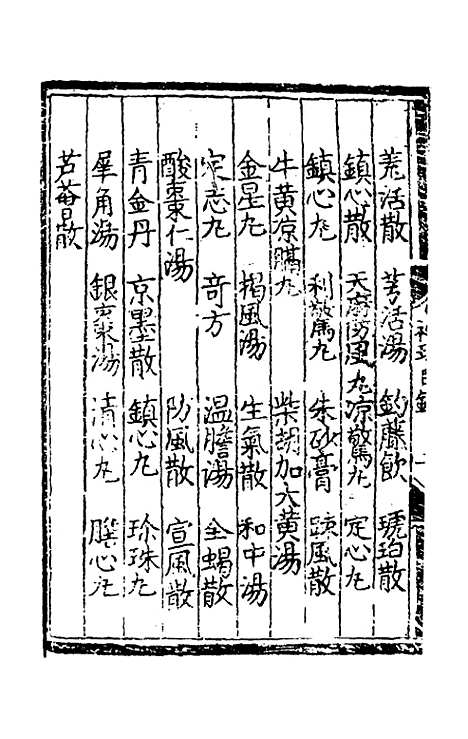 羗活散 芎活湯 釣藤飲 琥珀散
鎮心散 天麻防風丸 凉驚丸 定心丸
鎮心丸 利驚丸 朱砂膏 踈風散
牛黃凉膈丸 柴胡加大黃湯
金星丸 揭風湯 生氣散 和中湯
定志丸 奇方 温膽湯 全蝎散
酸棗仁湯 防風散 宣風散
青金丹 京墨散 鎮心丸 珍珠丸
犀角湯 銀湯 清心丸 心丸
芦薈散
目錄